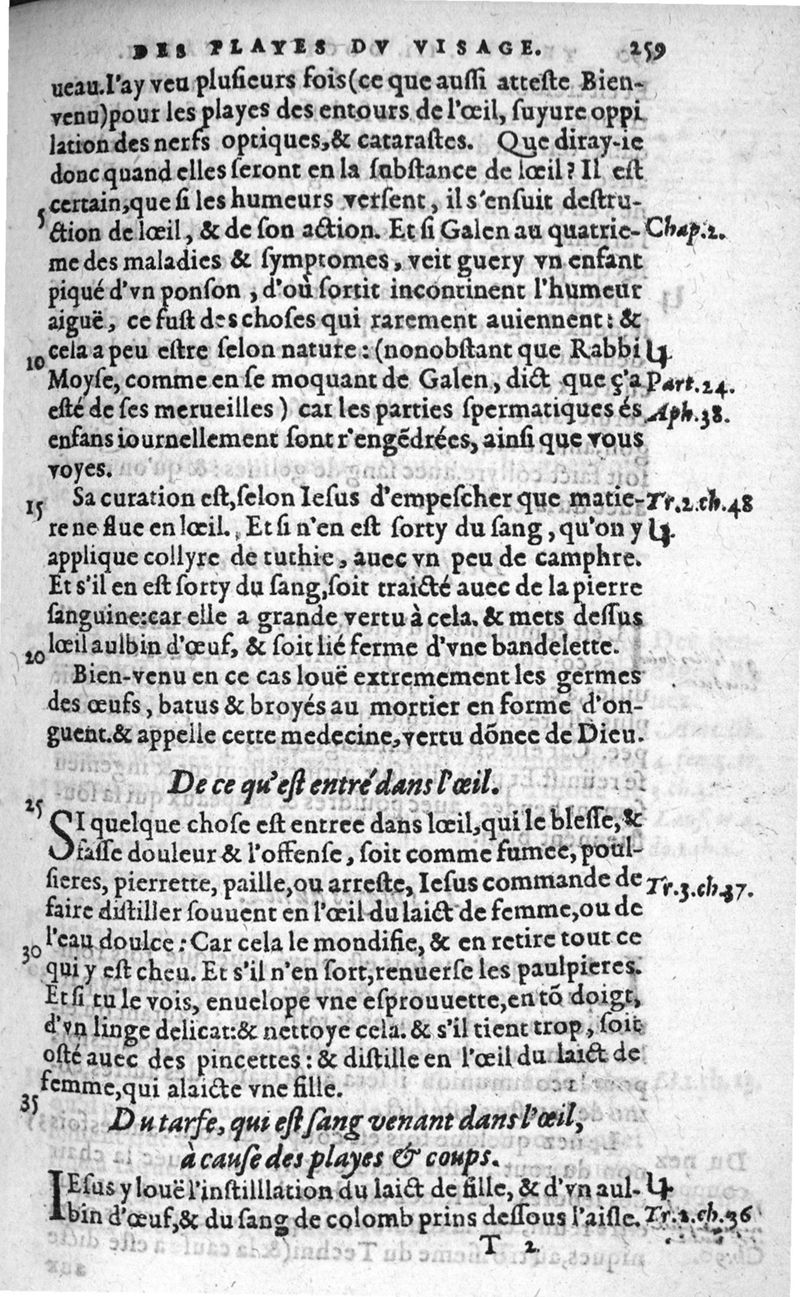 DES PLAYES DV VISAGE. 259
ueau. I'ay veu plusieurs fois (ce que aussi atteste Bien-
venu) pour les playes des entours de l'œil, suyure oppi
lation des nerfs optiques, & catarastes. Que diray-ie
donc quand elles seront en la substance de lœil? Il est
5 certain, que si les humeurs versent, il s'ensuit destru-
ction de lœil, & de son action. Et si Galen au quatrie- Chap. 2.
me des maladies & symptomes, veit guery vn enfant
piqué d'vn ponson, d'où sortit incontinent l'humeur
aiguë, ce fust des choses qui rarement auiennent: &
10 cela a peu estre selon nature: (nonobstant que Rabbi
Moyse, comme en se moquant de Galen, dict que ç'a Part. 24.
esté de ses merueilles) car les parties spermatiques és Aph. 38.
enfans iournellement sont r'engẽdrées, ainsi que vous
voyes.
15 Sa curation est, selon Iesus d'empescher que matie- Tr. 2. ch. 48
re ne flue en lœil. Et si n'en est sorty du sang, qu'on y
applique collyre de tuthie, auec vn peu de camphre.
Et s'il en est sorty du sang, soit traicté auec de la pierre
sanguine: car elle a grande vertu à cela. & mets dessus
20 lœil aulbin d'œuf, & soit lié ferme d'vne bandelette.
Bien-venu en ce cas louë extremement les germes
des œufs, batus & broyés au mortier en forme d'on-
guent. & appelle cette medecine, vertu dõnee de Dieu.
De ce qu'est entré dans l'œil.
25 SI quelque chose est entree dans lœil, qui le blesse, &
fasse douleur & l'offense, soit comme fumee, poul-
sieres, pierrette, paille, ou arreste, Iesus commande de Tr. 3. ch. 37.
faire distiller souuent en l'œil du laict de femme, ou de
30 l'eau doulce: Car cela le mondifie, & en retire tout ce
qui y est cheu. Et s'il n'en sort, renuerse les paulpieres.
Et si tu le vois, enuelope vne esprouuette, en tõ doigt,
d'vn linge delicat: & nettoye cela. & s'il tient trop, soit
osté auec des pincettes: & distille en l'œil du laict de
35 femme, qui alaicte vne fille.
Du tarfe, qui est sang venant dans l'œil,
à cause des playes & coups.
IEsus y louë l'instilllation du laict de fille, & d'vn aul-
bin d'œuf, & du sang de colomb prins dessous l'aisle. Tr. 2. ch. 36
T 2